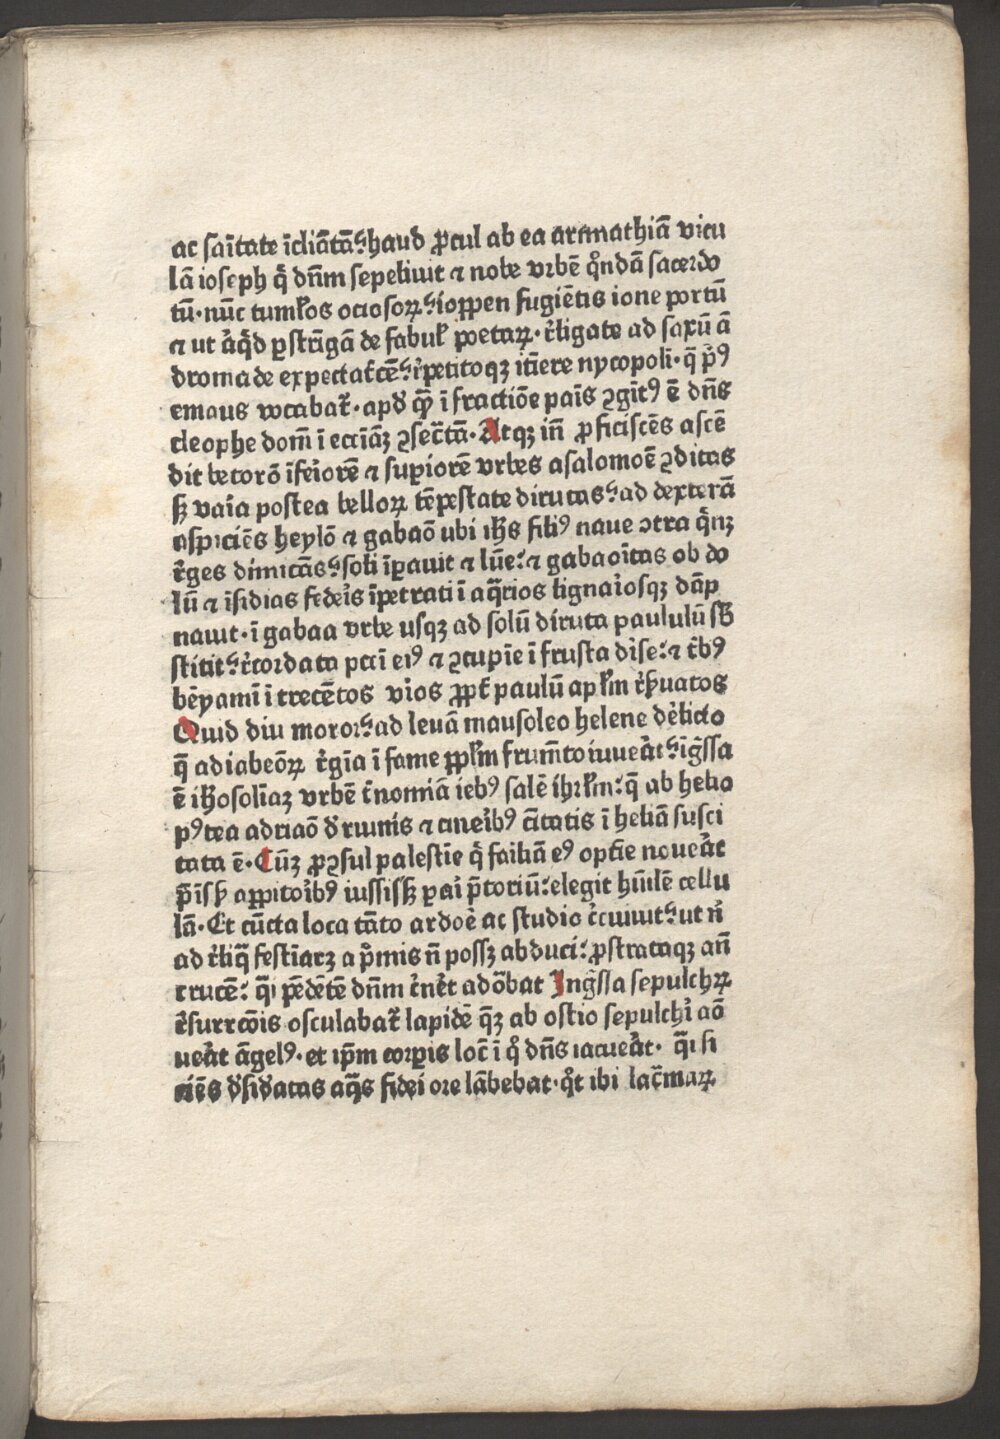 ac saı̄tate ı̄cliātā⸵haud ꝓcul ab ea arimathiā vicu
lā ioseph q̄ dn̄m sepeliuit ⁊ nobe vrbē qͦndā sacerdo
tū·nūc tumłos occisoꝝ⸵ioppen fugiētis ione portū
⁊ ut aͥq̄d ꝑstrı̄gā de fabuł poetaꝝ·rͤligate ad saxū ā
dromade expectatͨcē⸵rͤpetitoqꝫ itı̄ere nycopoli·q̄ pͥꝰ
emaus vocabat᷑·apd̄ qm̄ ı̄ fractiōe paı̄s ꝯgitꝰ ē dn̄s
cleophe dom̄ ı̄ eccı̄āꝫ ꝯsecͬtā·Atqꝫ in̄ ꝓficiscēs ascē
dit betorō ı̄feiͦorē ⁊ suꝑiorē vrbes asalomoē ꝯditas
sꝫ vaı̄a postea belloꝝ tēpestate dirutas⸵ad dexterā
aspiciēs heylō ⁊ gabaō ubi ih̄s filiꝰ naue ↄtra qͥnꝫ
rͤges dimicās⸵soli ı̄ꝑauit ⁊ lūe⸵⁊ gabaoı̄tas ob do
lū ⁊ ı̄sidias fedeiͬs ı̄petrati ı̄ aqͣrios lignaiͬosqꝫ dāp
nauit·ı̄ gabaa vrbe usqꝫ ad solū diruta paululū sb̄
stitit⸵rͤcordata pcı̄ı eiꝰ ⁊ ꝯcupı̄e ı̄ frusta diͥse⸵⁊ tͬbꝰ
bēyamı̄ ı̄ trecētos viͬos ꝓpt᷑ paulū apłm rͤẜuatos
Quid diu moror⸵ad leuā mausoleo helene dͤelicto
q̄ adiabeōꝝ rͤgı̄a ı̄ fame ꝓplm̄ frumͤto iuueͣt⸵ı̄gͬssa
ē ih̄osolı̄aꝫ vrbē tͥnomı̄ā iebꝰ salē ihrłm⸵q̄ ab helio
pꝰtea adriāo d̄ ruinıs ⁊ cineiͬbꝰ cı̄tatis ı̄ heliā susci
tata ē·Cūꝫ ꝓꝯsul palestı̄e q̄ faı̄liā eꝰ optı̄e noueͣt
p̄iſẜ apꝑitoiͬbꝰ iussisꝫ ꝑaiͬ p̄toriū⸵elegit hūılē cellu
lā·Et cūcta loca tāto ardoͤe ac studio cͬcuiuit⸵ut nͥ
ad rͤliq̄ festı̄arꝫ a pͥmis n̄ possꝫ abduci⸵ꝓstrataqꝫ an̄
crucē⸵qͣı pēdētē dn̄m cͤneͬt adōbat Ingͬssa sepulchꝝ
rͤsurrcōis osculabat᷑ lapidē qͥꝫ ab ostio sepulchiͥ aō
ueͣt āgelꝰ·et ip̄m corꝑis locͫ ı̄ qͦ dn̄s iacueͣt· qͣı si
ciēs d̄sid̄atas aqͣs fidei ore lābebat·qͥt ibi lacͬmaꝝ